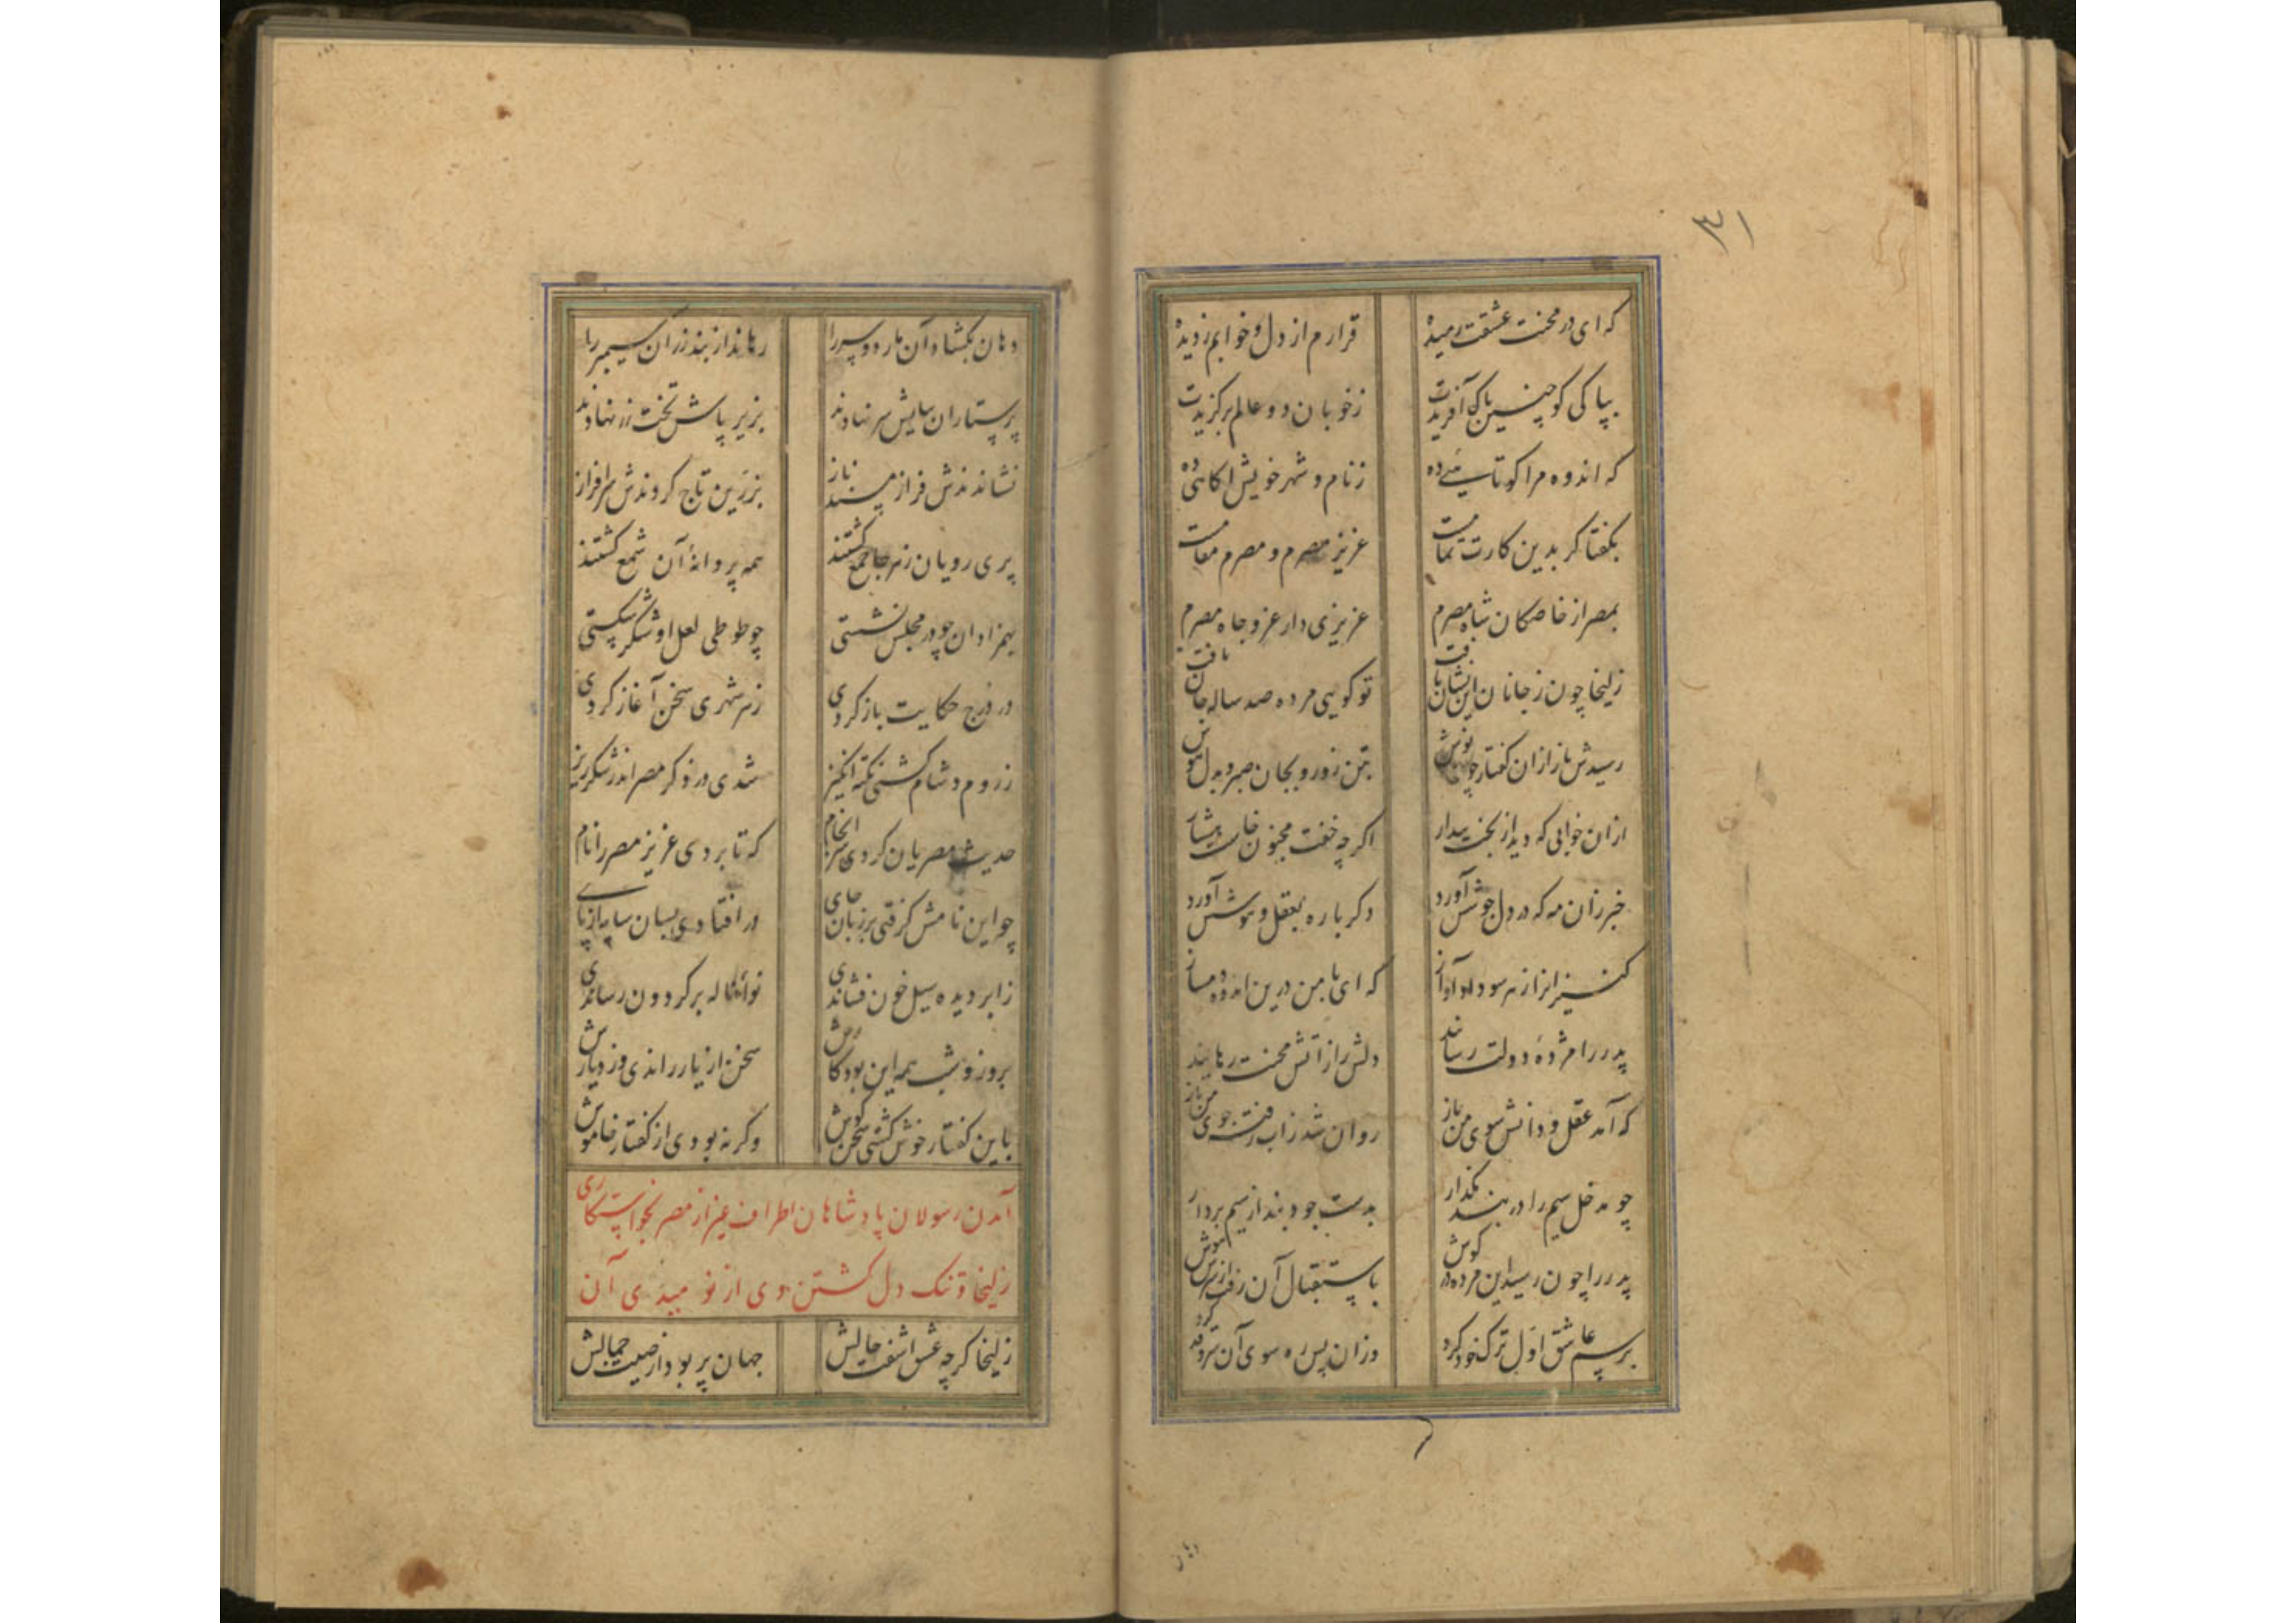 ۳۱
که ای در محنت عشقت رمیده قرارم از دل و خوابم ز دیده
بپاکی کو چنین پاک آفریدت ز خوبان دو عالم برگزیدت
که اندوه مرا کوتاهیی ده ز نام و شهر خویش آگاهیی ده
بگفتا گر بدین کارت تمامست عزیز مصرم و مصرم مقامست
بمصر از خاصگان شاه مصرم عزیزی دار عز و جاه مصرم
زلیخا چون ز جانان این نشان یافت تو گویی مرده صد ساله جان یافت
رسیدش باز ازان گفتار چون نوش بتن زور و بجان صبر و بدل هوش
ازان خوابی که دید از بخت بیدار اگرچه خفت مجنون خاست هشیار
خبر زان مه که در دل جوشش آورد دگرباره بعقل و هوشش آورد
کنیزانرا ز هر سو داد آواز که ای با من درین اندوه دمساز
پدر را مژده دولت رسانید دلش را ز آتش محنت رهانید
که آمد عقل و دانش سوی من باز روان شد ز آب رفته جوی من باز
چو مدخل سیم را در بند مگذار بدست جود بند از سیم بردار
پدر را چون رسید این مژده در گوش باستقبال آن رفت از سرش هوش
برسم عاشق اول ترک خود کرد وزان پس ره سوی آن سرو قد کرد
دهان
دهان بگشاد آن مار دو سر را رهاند از بند زر آن سیمبر را
پرستاران بپایش سر نهادند بزیر پاش تخت زر نهادند
نشاندندش فراز مسند ناز بزرین تاج کردندش سرافراز
پری رویان ز هر جا جمع گشتند همه پروانهٔ آن شمع گشتند
بهمزادان چو در مجلس نشستی چو طوطی لعل او شکر شکستی
در درج حکایت باز کردی ز هر شهری سخن آغاز کردی
ز روم و شام گشتی نکته انگیز شدی در ذکر مصر اندر شکرریز
حدیث مصریان کردی سرانجام که تا بردی عزیز مصر را نام
چو این نامش گرفتی بر زبان جای در افتادی بسان سایه از پای
ز ابر دیده سیل خون فشاندی نوای ناله بر گردون رساندی
بروز و شب همه این بود کارش سخن از یار راندی وز دیارش
باین گفتار خوش گشتی سخن گوش وگرنه بودی از گفتار خاموش
آمدن رسولان پادشاهان اطراف غیر از مصر بخواستکاری
زلیخا و تنک دل گشتن وی از نومیدی آن
زلیخا گرچه عشق آشفت حالش جهان پر بود از صیت جمالش